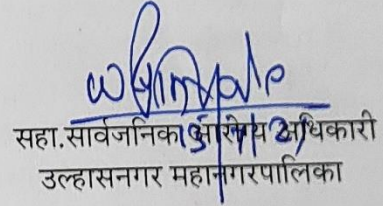 सहा.सार्वजनिक आरोग्य अधिकारी
उल्हासनगर महानगरपालिका